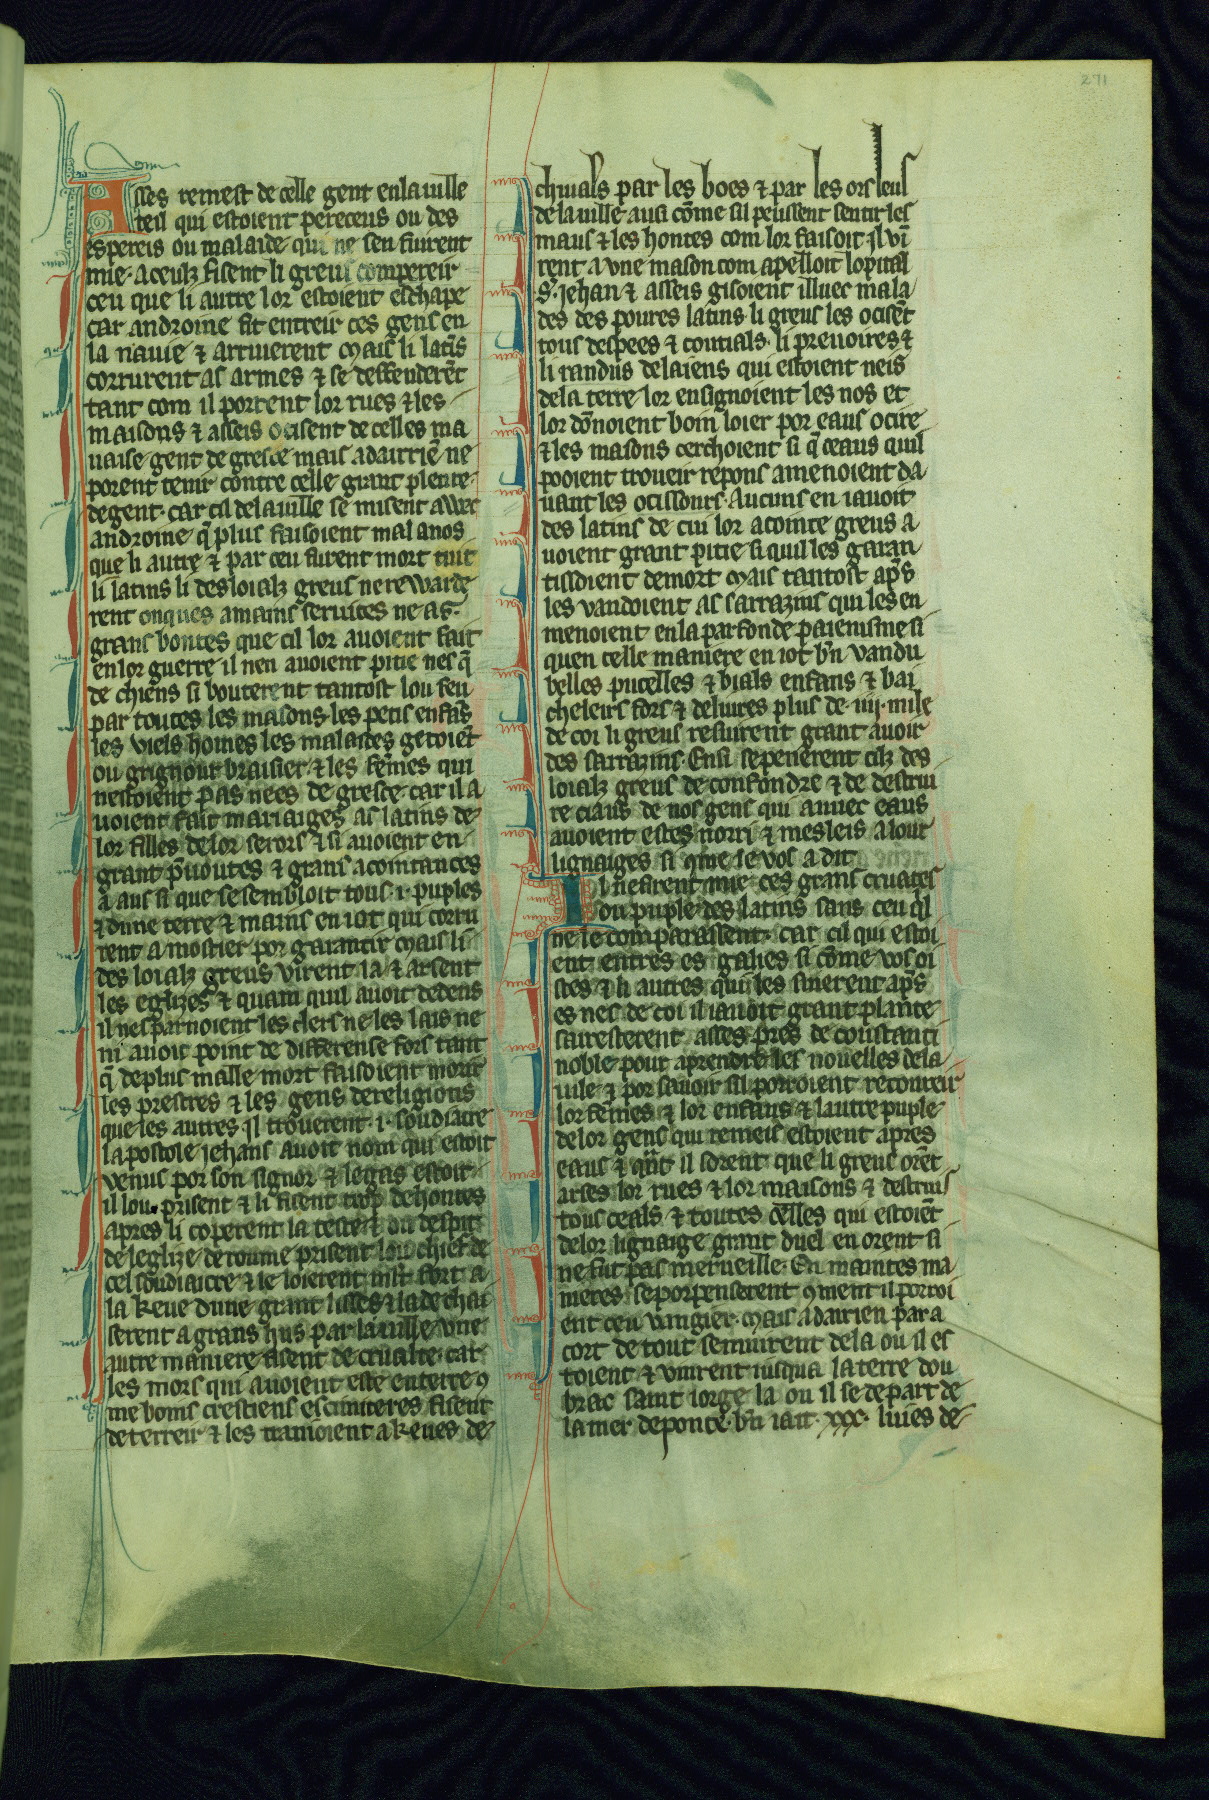 271
Asses remest de celle gent en la uille
teil qui estoient pereceus ou des
espereis ou malaide qui ne sen fuirent
mie. a ceulz fisent li greus compereir
ceu que li autre lor estoient eschape
car androine fit entreir ces gens en
la nauie ⁊ arriuerent mais li latīs
corrurent as armes ⁊ se deffenderēt
tant com il porrent lor rues ⁊ les
maisons ⁊ asseis ocisent de celles ma
uaise gent de gresce mais a dairriē ne
porent tenir contre celle grant plente
de gent. car cil de la uille se misent awec
androine. q̄ plus faisoient mal a nos
que li autre ⁊ par ceu furent mort tuit
li latins li desloialz greus ne rewarde
rent onques a mains seruices ne as
grans bontes que cil lor auoient fait
en lor guerre il nen auoient pitie nes q̄
de chiens si bouterent tantost lou feu
par toutes les maisons les petis enfās
les viels homes les malades getoiēt
ou grignour braisier ⁊ les fēmes qui
nestoient pas nees de gresce car il a
uoient fait mariaiges as latins de
lor filles de lor serors ⁊ si auoient en
grant p̄uoutes ⁊ grans acointances
a aus si que se sembloit tous .i. puples
⁊ dune terre ⁊ mains en iot qui corru
rent a mostier por garantir mais li
des loialz greus virent la ⁊ arsent
les eglizes ⁊ quam quil auoit dedens
il nesparnoient les clers ne les lais ne
ni auoit point de differense fors tant
q̄ de plus malle mort faisoient morir
les prestres ⁊ les gens de religions
que les autres q̄l trouerent .i. soudiacre
lapostole jehans auoit nom qui estoit
venus por son signor ⁊ legas estoit
il lou prisent ⁊ li fisent trop de hontes
apres li coperent la teste ⁊ ou despit
de leglize de roume prisent lou chief de
cel soudiacre ⁊ le loierent mlt̄ fort a
la keue dune grant lisse ⁊ la dechai
serent a grans hus par la uille vne
autre maniere fisent de crualte. car
les mors qui auoient este enterre 9
me boins crestiens es cimiteres fisent
deterreir ⁊ les trainoient a keues de
chiuals par les boes ⁊ par les ors leus
de la uille ausi cōme sil peussent sentir les
maus ⁊ les hontes com lor faisoit jl vī
rent a vne mason com apelloit lopital
S. jehan ⁊ asseis gisoient illuec mala
des des poures latins li greus les ocisēt
tous despees ⁊ coutials. li prenoires ⁊
li randus de laiens qui estoient neis
de la terre lor ensignoient les nos et
lor dōnoient boin loier por eaus ocire
⁊ les masons cerchoient si q̄ ceaus quil
pooient troueir repons amenoient da
uant les ocissours. Aucuns en iauoit
des latins de cui lor acointe greus a
uoient grant pitie si quil les garan
tissoient de mort mais tantost ap̄s
les vandoient as sarrazins qui les en
menoient en la parfonde paienisme si
quen celle maniere en iot bn̄ vandu
belles pucelles ⁊ bials enfans ⁊ bai
cheleirs fors ⁊ deliures plus de .iiij. mile
de coi li greus resurent grant auoir
des sarrazins. Ensi se penerent cilz des
loialz greus de confondre ⁊ de destrui
re ciaus de nos gens qui auuec eaus
auoient estes norri ⁊ mesleis a lour
lignaiges si q̄me ie vos a dit
Il ne firent mie ces grans cruates
ou puple des latins sans ceu q̄l
ne le comparassent. car cil qui estoi
ent entres es galies si cōme vos oi
stes ⁊ li autres qui les siuerent ap̄s
es nes de coi il iauoit grant plante
sairesterent asses pres de coustanti
noble pour aprendre les nouelles de la
uile ⁊ por sauoir sil porroient recoureir
lor fēmes ⁊ lor enfans ⁊ lautre puple
de lor gens qui remeis estoient apres
eaus ⁊ qn̄t il sorent que li greus orēt
arses lor rues ⁊ lor maisons ⁊ destruis
tous ceals ⁊ toutes celles qui estoiēt
de lor lignaige grant duel en orent si
ne fut pas merueille. En maintes ma
nieres se porpenserent 9ment il porroi
ent ceu vangier. mais a dairien par a
cort de tout se muirent de la ou il es
toient ⁊ vinrent iusqua la terre dou
brac saint iorge la ou il se depart de
la mer de ponce. bn̄ iait .xxx. liues de